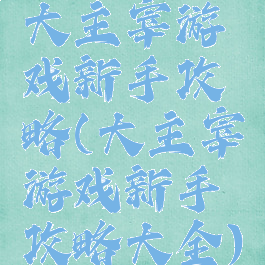 大主宰游
戏新手攻
略(大主宰
游戏新手
攻略大全)